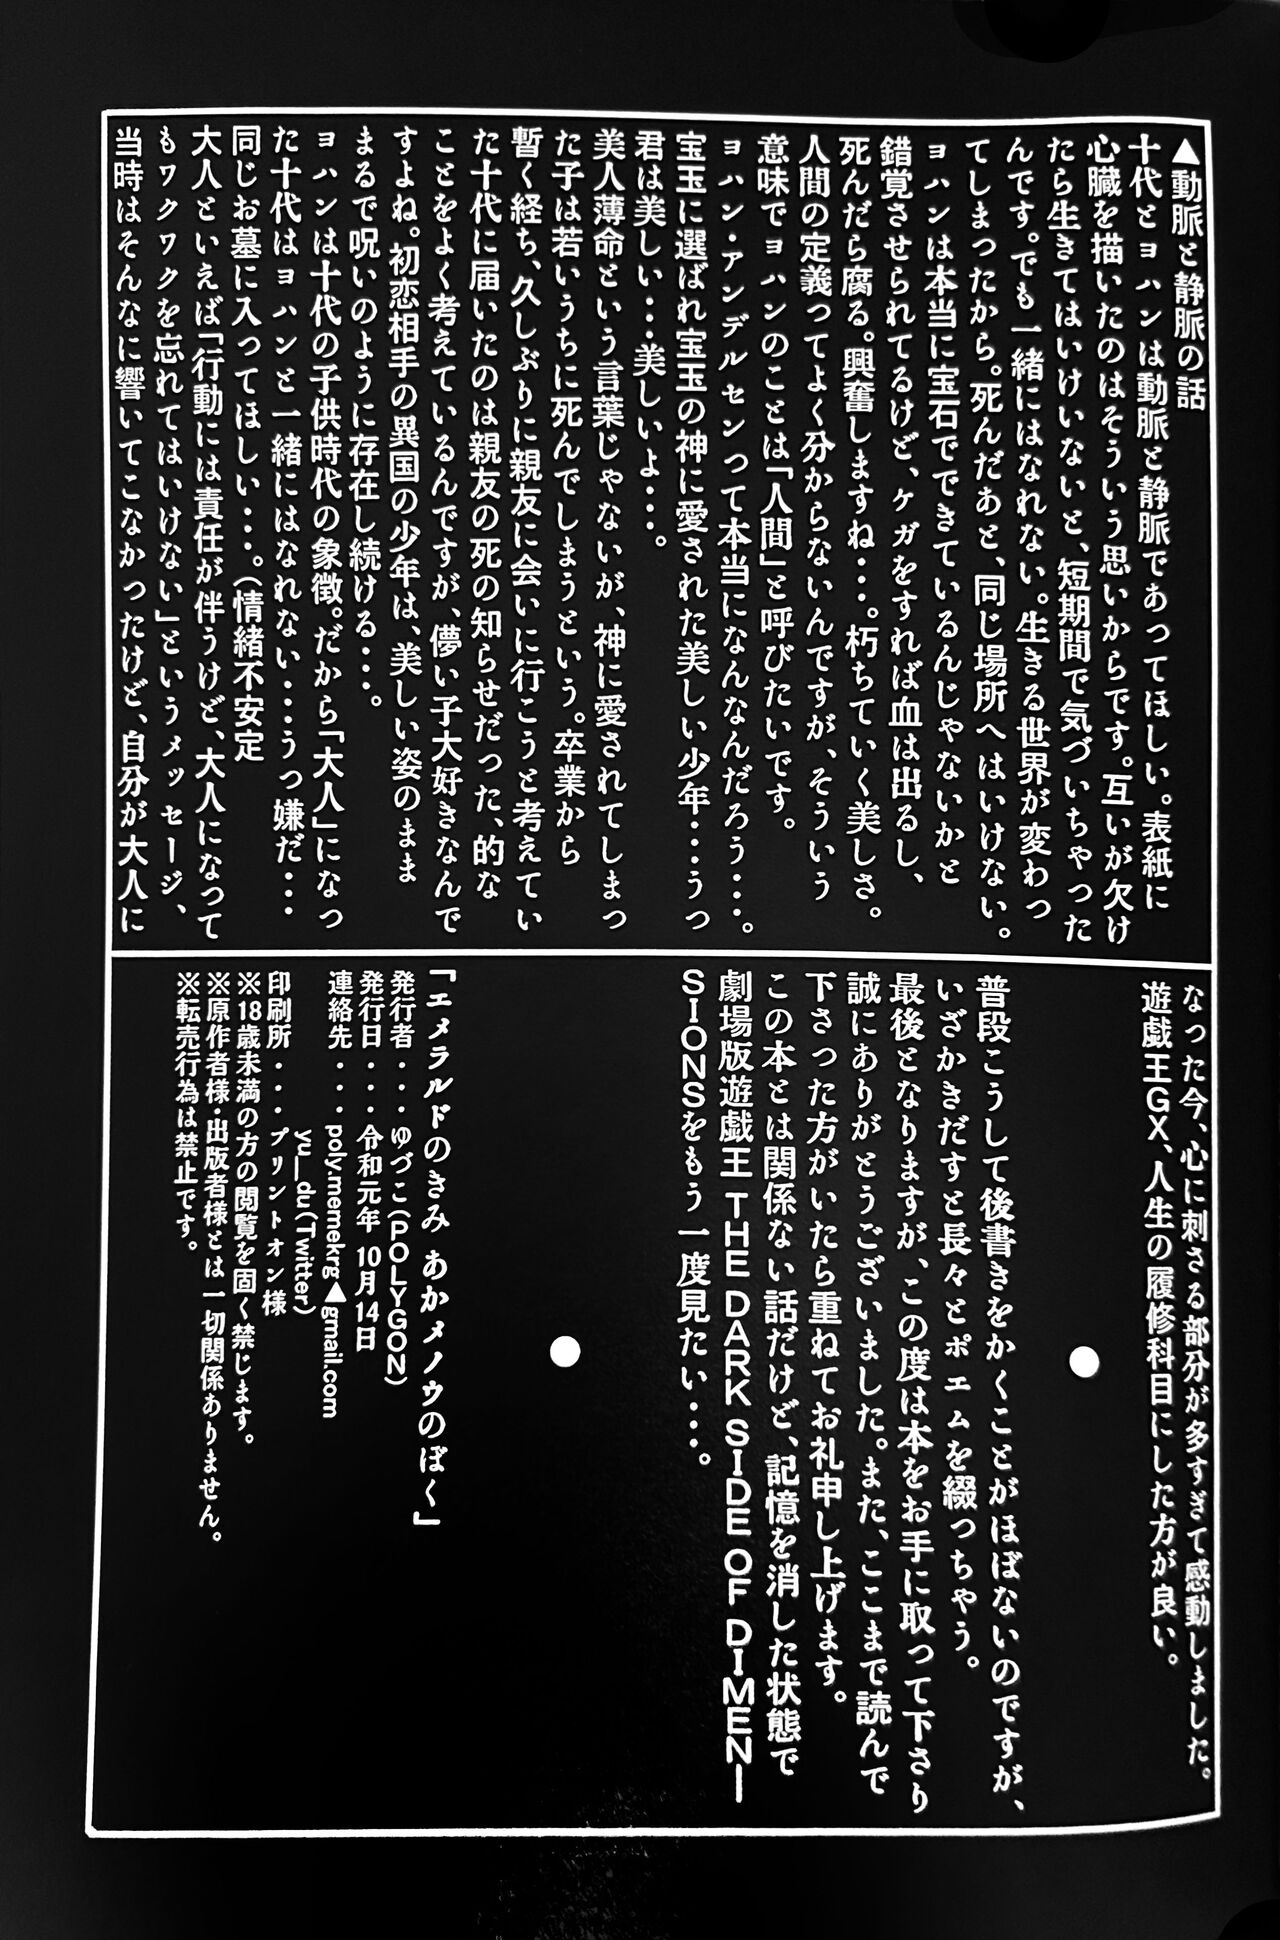 ▲動脈と静脈の話
十代とヨハンは動脈と静脈であってほしい。表紙に
心臓を描いたのはそういう思いからです。互いが欠け
たら生きてはいけいないと、短期間で気づいちゃった
んです。でも一緒にはなれない。生きる世界が変わっ
てしまったから。死んだあと、同じ場所へはいけない。
ヨハンは本当に宝石でできているんじゃないかと
錯覚させられてるけど、ケガをすれば血は出るし、
死んだら腐る。興奮しますね・・・。朽ちていく美しさ。
人間の定義ってよく分からないんですが、そういう
意味でヨハンのことは「人間」と呼びたいです。
ヨハン・アンデルセンって本当になんなんだろう・・・。
宝玉に選ばれ宝玉の神に愛された美しい少年・・・うっ
君は美しい・・・美しいよ・・・。
美人薄命という言葉じゃないが、神に愛されてしまっ
た子は若いうちに死んでしまうという。卒業から
暫く経ち、久しぶりに親友に会いに行こうと考えてい
た十代に届いたのは親友の死の知らせだった、的な
ことをよく考えているんですが、儚い子大好きなんで
すよね。初恋相手の異国の少年は、美しい姿のまま
まるで呪いのように存在し続ける・・・。
ヨハンは十代の子供時代の象徴。だから「大人」になっ
た十代はヨハンと一緒にはなれない・・・うっ嫌だ・・・
同じお墓に入ってほしい・・・。(情緒不安定
大人といえば「行動には責任が伴うけど、大人になって
もワクワクを忘れてはいけない」というメッセージ、
当時はそんなに響いてこなかったけど、自分が大人に
なった今、心に刺さる部分が多すぎて感動しました。
遊戯王GX、人生の履修科目にした方が良い。
●
普段こうして後書きをかくことがほぼないのですが、
いざかきだすと長々とポエムを綴っちゃう。
最後となりますが、この度は本をお手に取って下さり
誠にありがとうございました。また、ここまで読んで
下さった方がいたら重ねてお礼申し上げます。
この本とは関係ない話だけど、記憶を消した状態で
劇場版遊戯王 THE DARK SIDE OF DIMEN-
SIONSをもう一度見たい・・・。
●
「エメラルドのきみ あかメノウのぼく」
発行者・・・ゆづこ(POLYGON)
発行日・・・令和元年 10月14日
連絡先・・・poly.memekrg▲gmail.com
yu__du(Twitter)
印刷所・・・プリントオン様
※18歳未満の方の閲覧を固く禁じます。
※原作者様・出版者様とは一切関係ありません。
※転売行為は禁止です。